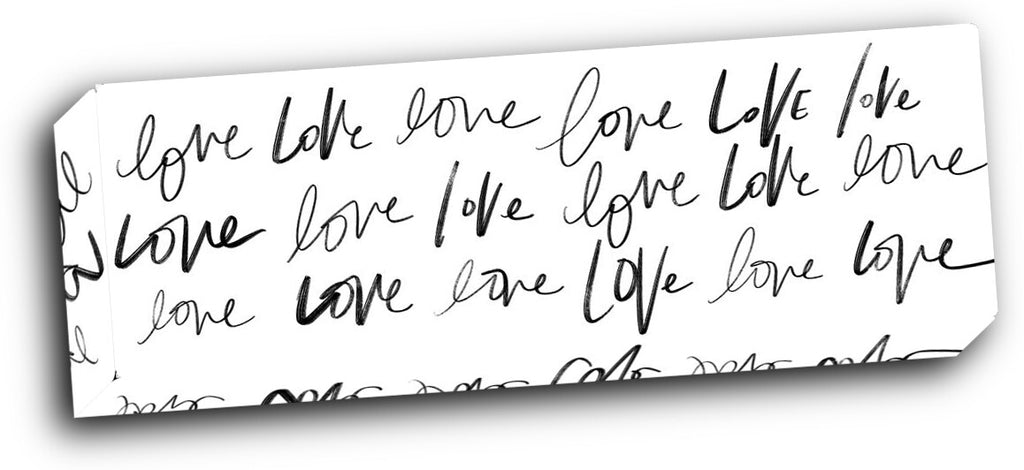 love Love love love LOVE love
Love love love love Love love
love love love LOVE love love